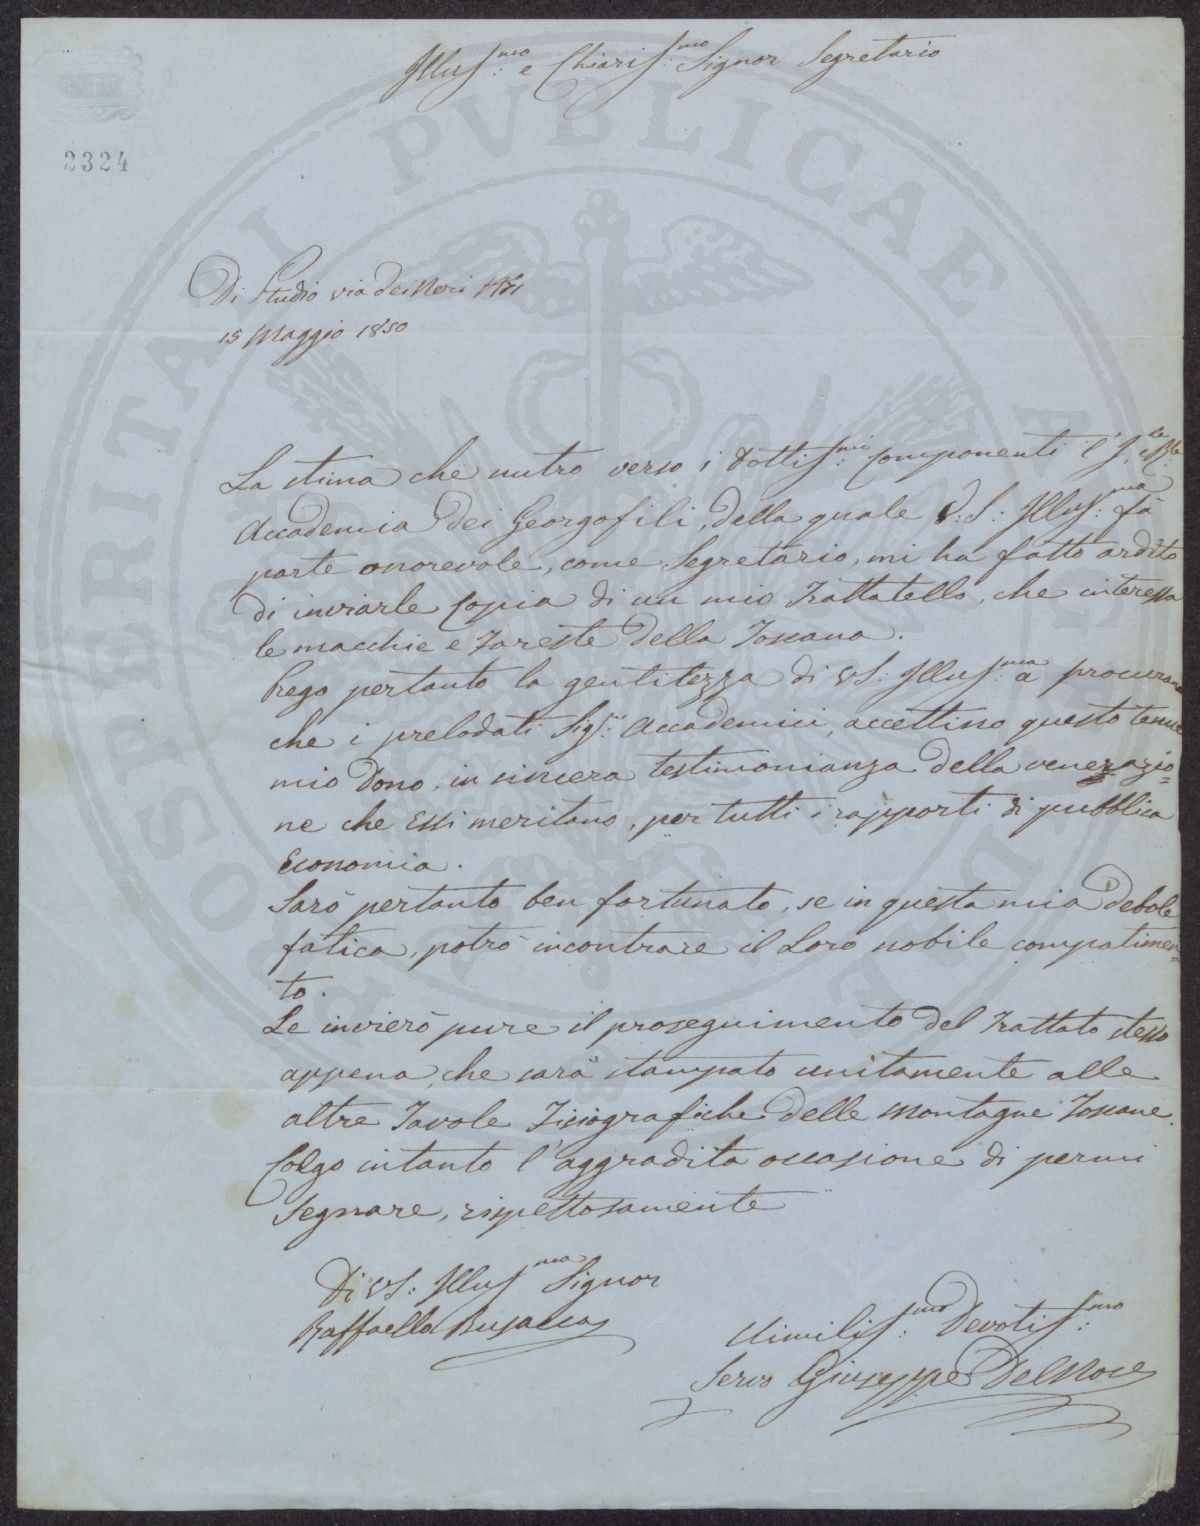 Illus.mo e Chiaris.mo Signor Segretario
2324
Di Studio via dei Neri
15 Maggio 1850
La stima che nutro verso i Dottis.mi Componenti l'I. e R.le
Accademia dei Georgofili, della quale V: S: Illus:ma fà
parte onorevole, come Segretario, mi ha fatto ardito
di inviarle Copia di un mio Trattatello, che interessa
le macchie e Foreste della Toscana.
Prego pertanto la gentilezza di VS: Illus:ma a procurare
che i prelodati Sig:ri Accademici, accettino questo tenue
mio Dono, in sincera testimonianza della venerazio=
ne che Essi meritano, per tutti i rapporti di pubblica
Economia.
Sarò pertanto ben fortunato, se in questa mia Debole
fatica, potrò incontrare il Loro nobile compatimen=
to.
Le invierò pure il proseguimento del Trattato stesso
appena, che sarà stampato unitamente alle
altre Tavole Fisiografiche delle Montagne Toscane.
Colgo intanto l'aggradita occasione di permi
segnare, rispettosamente
Di VS: Illus:ma Signor
Raffaello Busacca
Umilis:mo Devotis:mo
Servo Giuseppe Del Noce
PROSPERITATI PVBLICAE AVGENDAE